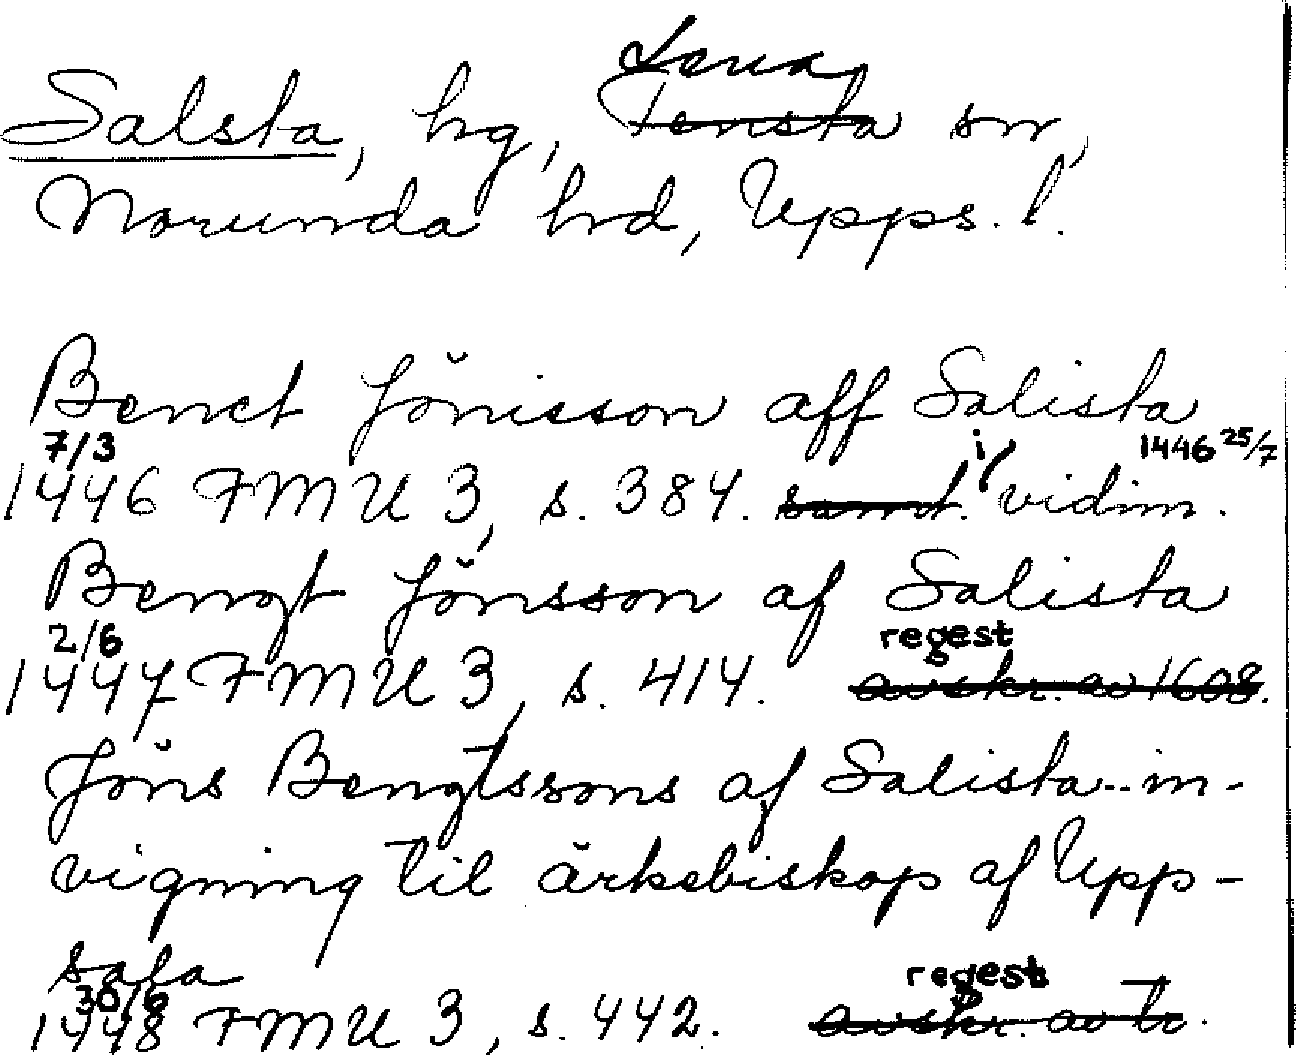 Lena
Salsta, hg, Tensta sn,
Norunda hd, Upps. l.
Benct Jönisson aff Salista
7/3 i 1446 25/7
1446 FMU 3, s. 384. samt. vidim.
Bengt Jönsson af Salista
2/6 regest
1447 FMU 3, s. 414. avskr. av 1608.
Jöns Bengtssons af Salista.. in-
vigning til ärkebiskop af Upp-
sala
30/6 regest
1448 FMU 3, s. 442. avskr. av tr.